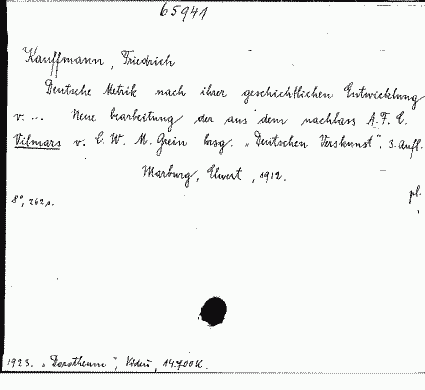 65941
Kauffmann, Friedrich
Deutsche Metrik nach ihrer geschichtlichen Entwicklung
v. ... Neue bearbeitung der aus dem nachlass A. F. C.
Vilmars v. C. W. M. Grein hrsg. „Deutschen Verskunst". 3. Aufl.
Marburg, Elwert, 1912.
pl.
8°, 262 s.
1923. „Dorotheum", 14.700 K.